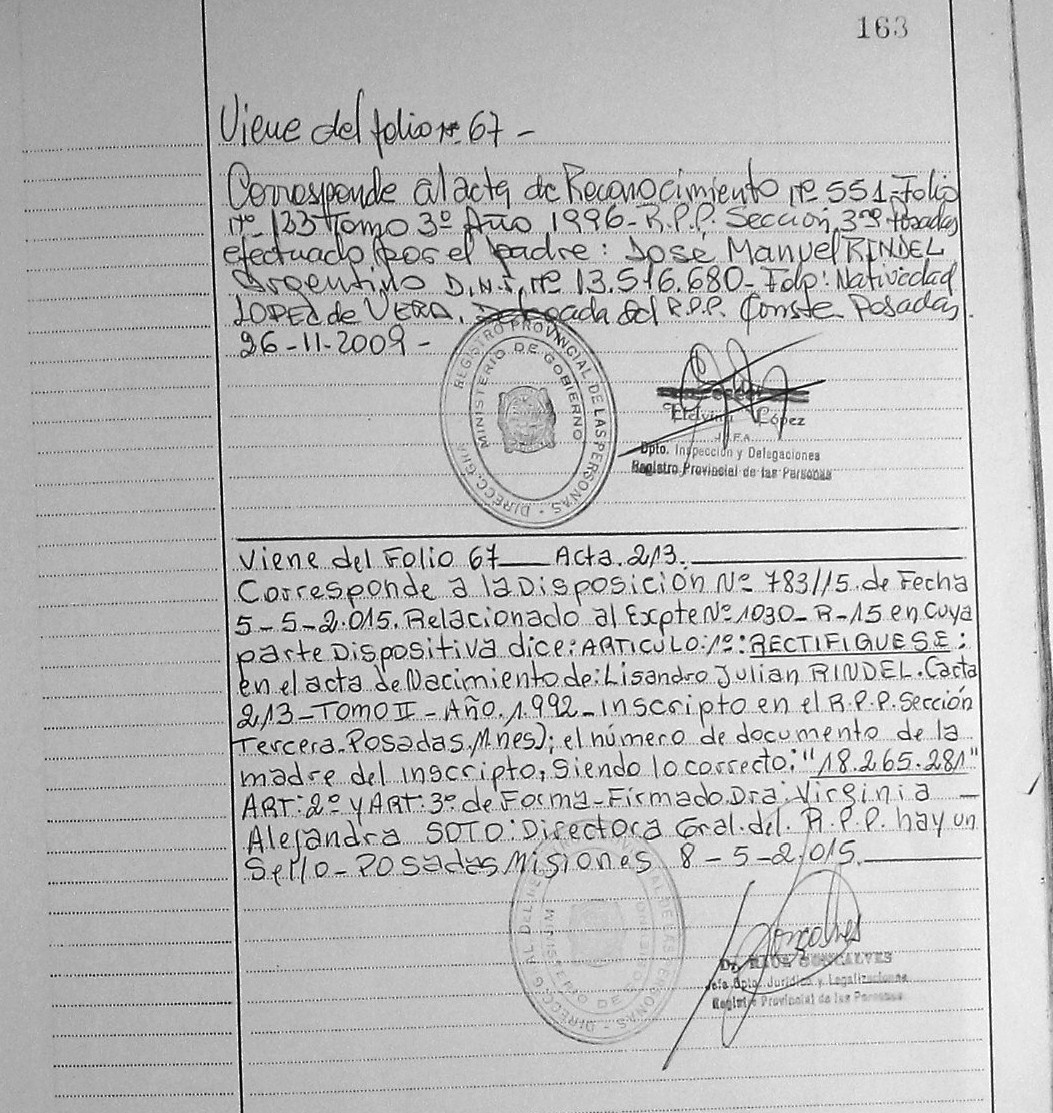 163
Viene del folio nº 67 -
Corresponde al acta de Reconocimiento nº 551 - Folio
nº 133 Tomo 3º Año 1996 - R.P.P. Sección 3ra Posadas
efectuado por el padre: José Manuel RINDEL
Argentino D.N.I. nº 13.516.680 - Fdo: Natividad
LOPEZ de VERA. Delegada del R.P.P. Conste Posadas,
26-11-2009 -
REGISTRO PROVINCIAL DE LAS PERSONAS - DIRECC. GRAL
MINISTERIO DE GOBIERNO
Etelvina López
Dpto. Inspección y Delegaciones
Registro Provincial de las Personas
Viene del Folio 67 Acta. 213.
Corresponde a la Disposición Nº 783/15 de Fecha
5-5-2.015. Relacionado al Expte Nº 1030-R-15 en cuya
parte Dispositiva dice: ARTICULO: 1º: RECTIFIQUESE:
en el acta de Nacimiento de: Lisandro Julian RINDEL. (acta
213-TOMO II - Año. 1.992 - Inscripto en el R.P.P. Sección
Tercera-Posadas. Mnes); el número de documento de la
madre del inscripto, siendo lo correcto: "18.265.281"
ART: 2º y ART: 3º de Forma-Firmado Dra. Virginia -
Alejandra SOTO: Directora Gral. del. R.P.P. hay un
Sello - Posadas Misiones 8-5-2.015.
MINISTERIO DE GOBIERNO
Gonçalves
Dr. RAUL GONCALVES
Jefe Dpto. Jurídico y Legalizaciones
Registro Provincial de las Personas